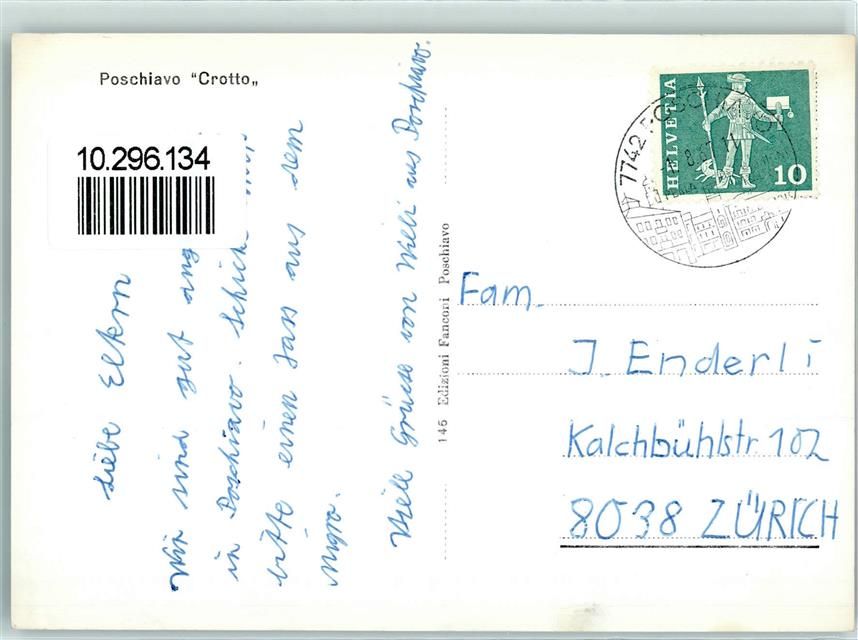 Poschiavo "Crotto„
10.296.134
Liebe Eltern
Wir sind gut ang
in Poschiavo. Schickt
bitte einen Jass aus dem
Migro.
Viell Grüsse von Willi aus Poschiavo.
146 Edizioni Fanconi Poschiavo
HELVETIA
10
7742
Fam.
J. Enderli
Kalchbühlstr 102
8038 ZÜRICH